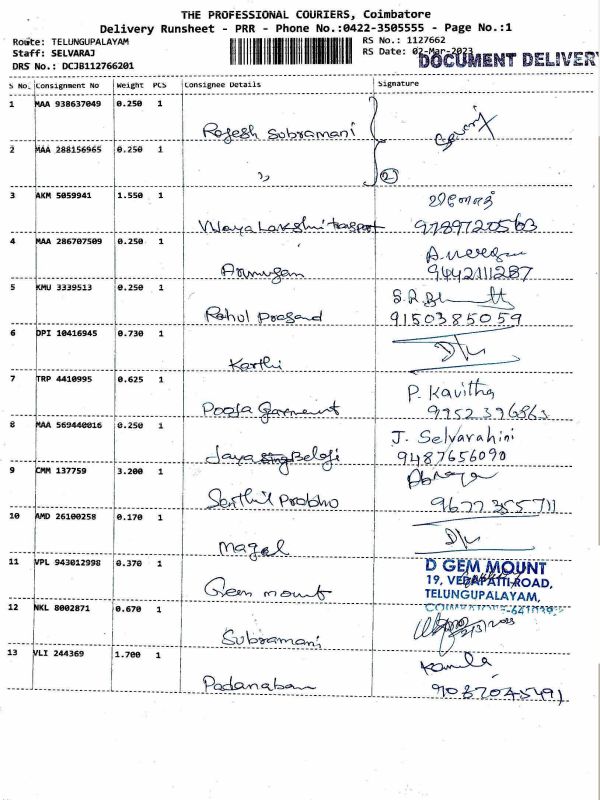 THE PROFESSIONAL COURIERS, Coimbatore
Delivery Runsheet - PRR - Phone No.:0422-3505555 - Page No.:1
Route: TELUNGUPALAYAM
Staff: SELVARAJ
DRS No.: DCJB112766201
RS No.: 1127662
RS Date: 02-Mar-2023
DOCUMENT DELIVERY
S No. Consignment No Weight PCS Consignee Details Signature
1 MAA 938637049 0.250 1
Rajesh Subramani
2 MAA 288156965 0.250 1
,, 2
3 AKM 5059941 1.550 1
Vijaya Lakshmi transport
4 MAA 286707509 0.250 1
Arumugam 9442111287
5 KMU 3339513 0.250 1
Rahul Prasand 9150385059
6 DPI 10416945 0.730 1
Karthi
7 TRP 4410995 0.625 1 P. Kavitha
Pooja Garment
8 MAA 569440016 0.250 1 J. Selvarahini
Jaya Beloji 9487656090
9 CMM 137759 3.200 1
Senthil Prabhu 9677355711
10 AMD 26100258 0.170 1
Magal
11 VPL 943012998 0.370 1 D GEM MOUNT
19, VEDAPATTI ROAD,
Gem mount TELUNGUPALAYAM,
12 NKL 8002871 0.670 1
Subramani
13 VLI 244369 1.700 1 Kamila
Padanaban